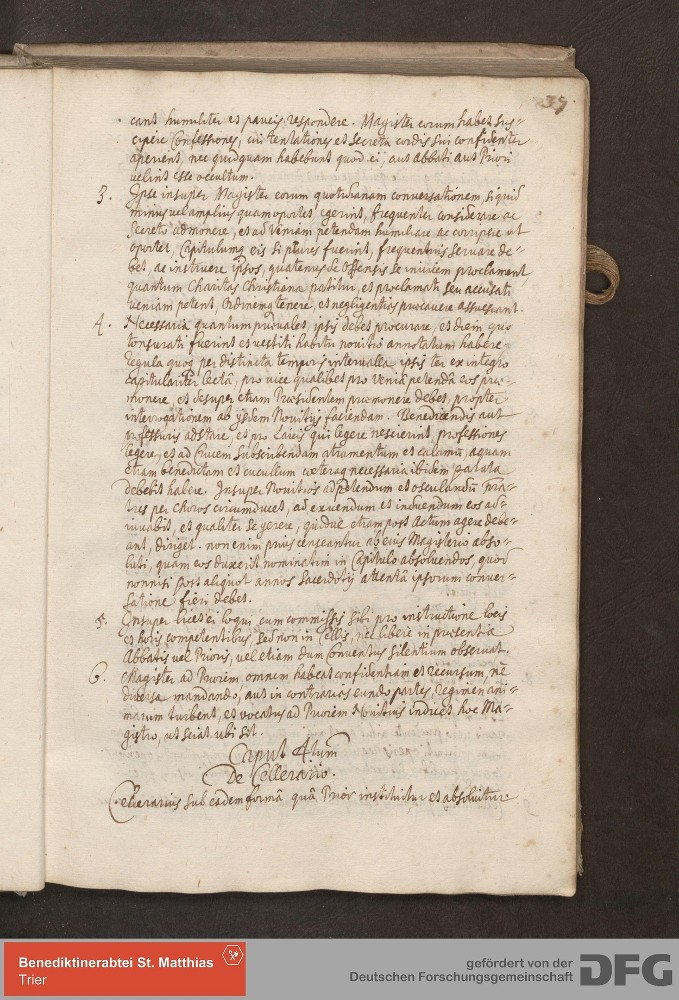 39.
cant humiliter et paucis respondere. Magister eorum habet sus-
cipere Confessiones, cui tentationes et secreta cordis sui confidenter
aperient, nec quidquam habebunt quod ei, aut abbati aut Priori
velint esse occultum.
3. Ipse insuper Magister eorum quotidianam conversationem, si quid
minus vel amplius quam oportet egerint, frequenter considerare ac
secreto admonere, et ad veniam petendam humiliare ac corripere ut
oportet, Capitulumq eis si plures fuerint, frequentius servare de-
bet, ac instruere ipsos, quatenus de offensis se invicem proclament,
quantum Charitas Christiana patitur, et proclamati, seu accusati
veniam petent, Ordinemq tenere, et negligentias praecavere assuescant.
4. Necessaria quantum praevalet, ipsis debet procurare, et diem quo
tonsurati fuerint et vestiti habitu novitio annotatum habere
regula quoq per distincta temporis intervalla ipsis ter ex integro
capitulariter lecta, pro vice qualibet pro venia petenda eos prae-
monere, et desuper etiam Praesidentem praemonere debet, propter
interrogationem ab ijsdem Novitijs faciendam. Benedicendis aut
professuris adstare, et pro Laicis qui legere nescierint, professiones
legere, et ad Crucem subscribendam atramentum et calamum, aquam
etiam benedictam et cucullum caeteraq necessaria ibidem parata
debebit habere. Insuper Novitios ad petendum et osculandum fra-
tres per choros circumducet, ad exuendum et induendum eos ad-
iuvabit, et qualiter se gerere, quidve etiam post actum agere debe-
ant, diriget. non enim prius censeantur ab eius Magisterio abso-
luti, quam eos duxerit nominatim in Capitulo absolvendos, quod
nonnisi post aliquot annos Sacerdotij attenta ipsorum conver-
satione fieri debet.
5. Insuper licet ei loqui, cum commissis sibi pro instructione locis
et horis competentibus, sed non in Cellis, nec libere in praesentia
Abbatis vel Prioris, vel etiam dum Conventus silentium observat.
6. Magister ad Priorem omnem habeat confidentiam et recursum, ne
diversa mandando, aut in contrarias eundo partes, Regimen ani-
marum turbent, et vocatus ad Priorem Novitius indicet hoc Ma-
gistro, ut sciat ubi sit.
Caput 4tum
De Cellerario.
Cellerarius sub eadem forma qua Prior instituitur et absolvitur.
Benediktinerabtei St. Matthias
Trier
gefördert von der
Deutschen Forschungsgemeinschaft
DFG